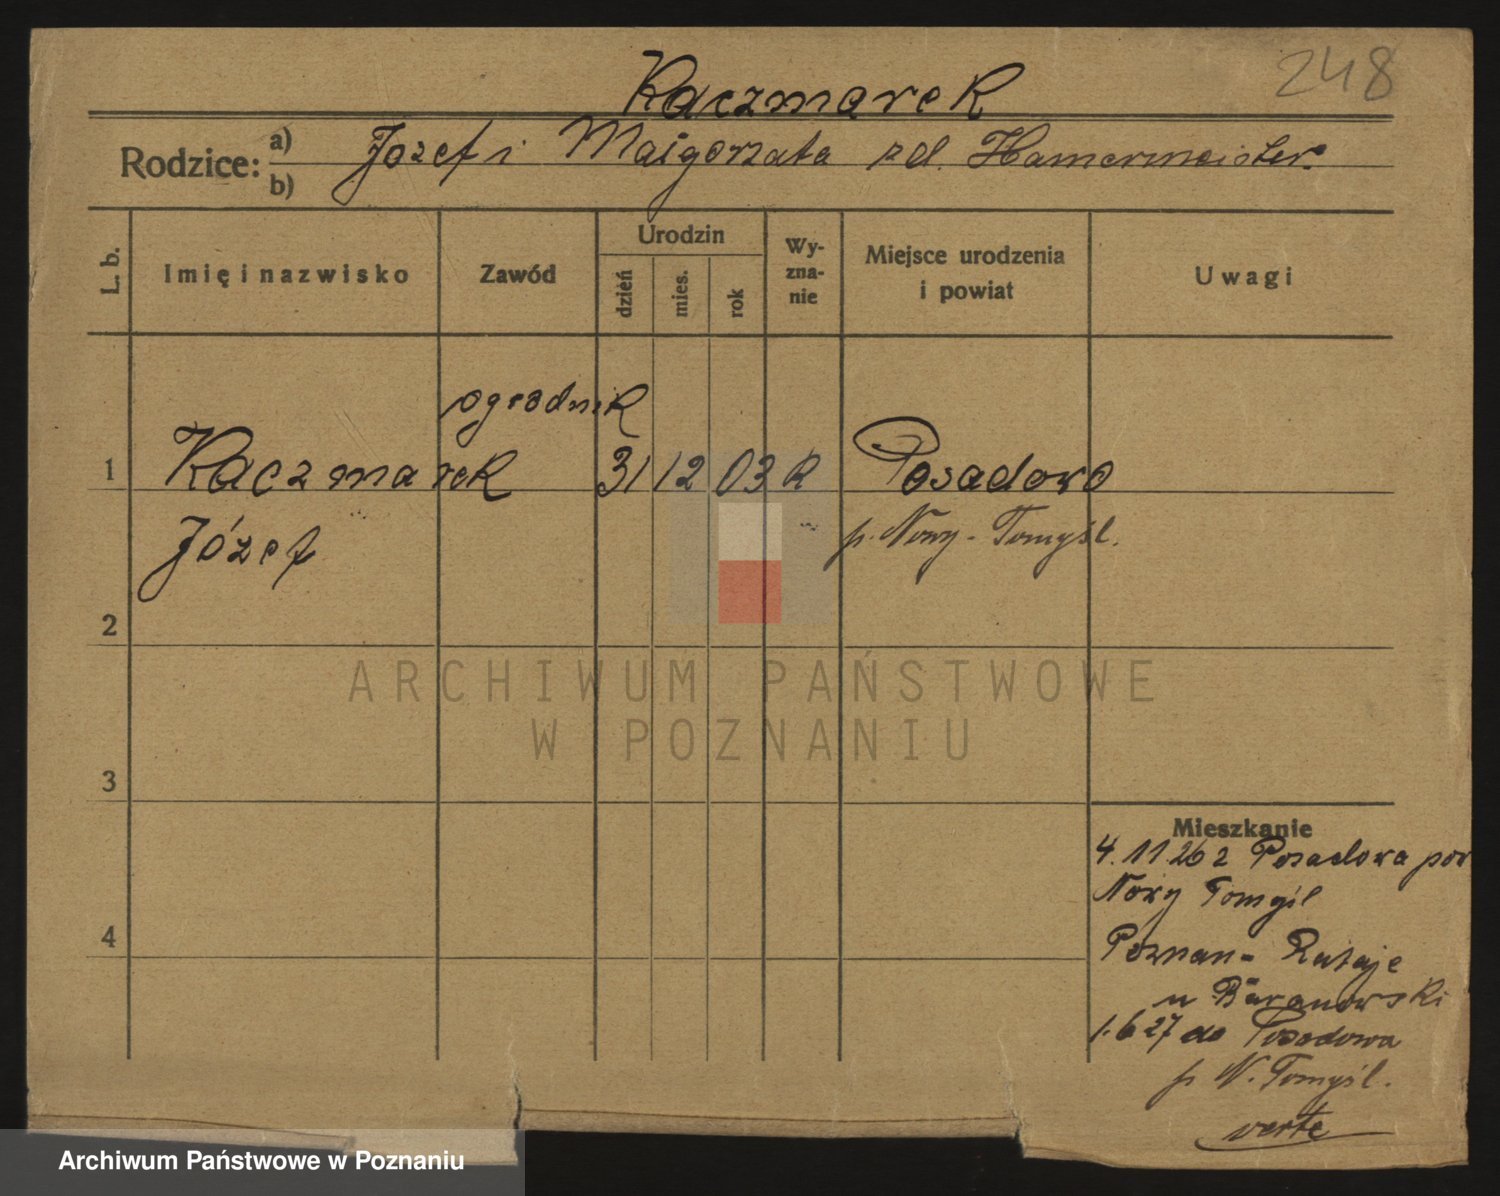 248
Kaczmarek
Rodzice: a) Józef i Małgorzata zd. Hamermeister.
b)
L. b.
Imię i nazwisko
Zawód
Urodzin
dzień
mies.
rok
Wy-
zna-
nie
Miejsce urodzenia
i powiat
Uwagi
ogrodnik
1 Kaczmarek 31 12 03 R Posadowo
Józef p. Nowy-Tomyśl.
2
3
4
Mieszkanie
4.11.26 z Posadowa pow
Nowy Tomyśl
Poznan- Rataje
u Baranowski
1.6 27 do Posadowa
p N. Tomyśl.
verte
ARCHIWUM PAŃSTWOWE
W POZNANIU
Archiwum Państwowe w Poznaniu